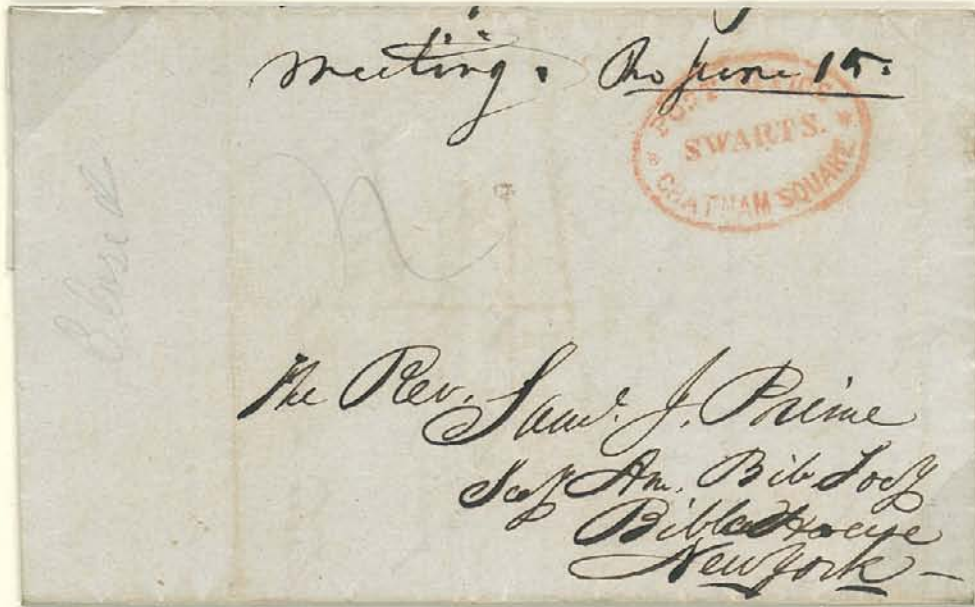 meeting. Tho June 15.
POST OFFICE
SWARTS.
CHATHAM SQUARE
The Rev. Saml. J. Prime
Secy Am. Bib Socy
Bible House
New York